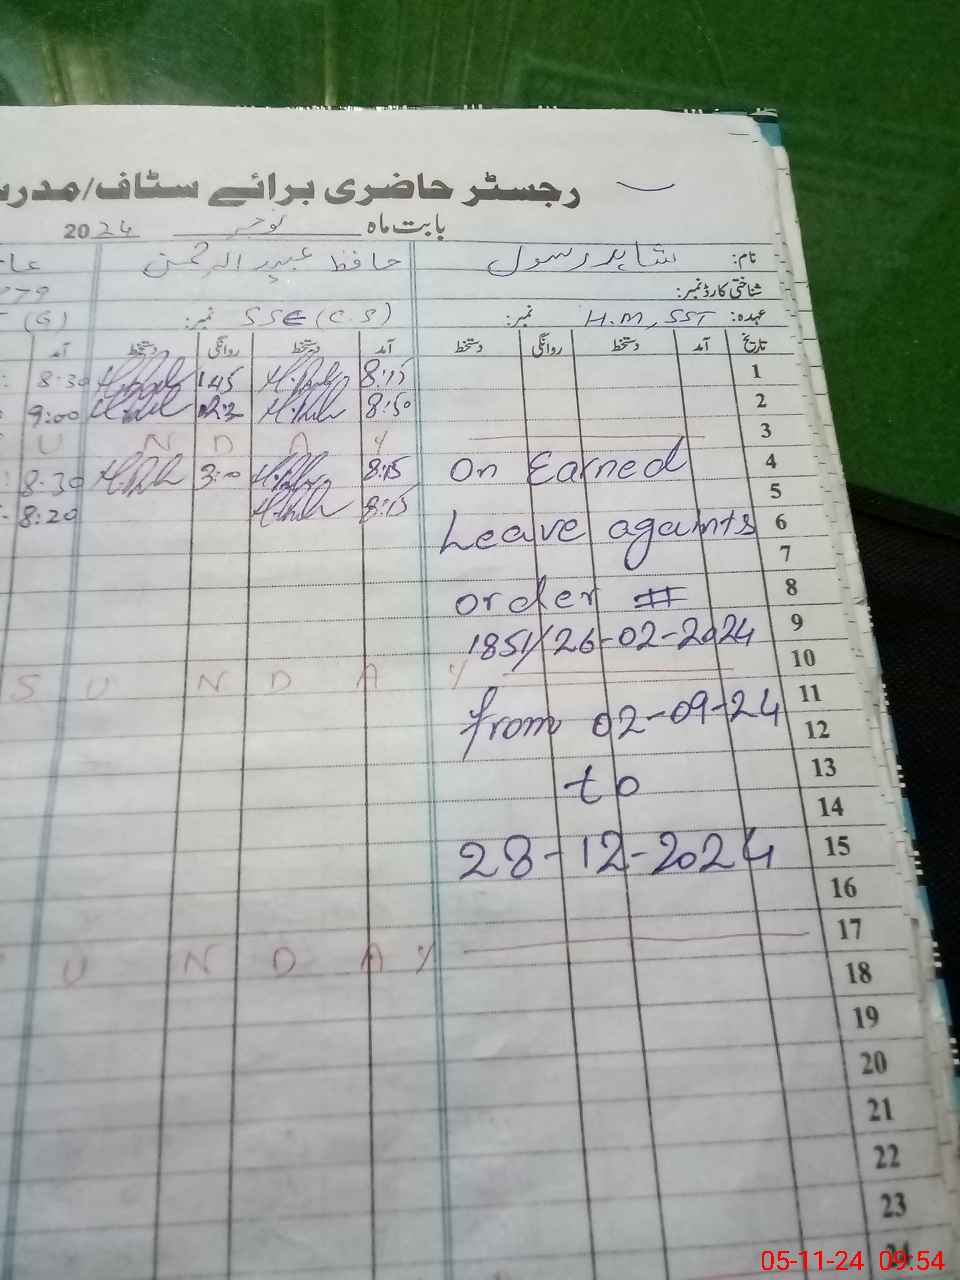 رجسٹر حاضری برائے سٹاف/مدرسہ
بابت ماہ نومبر 2024
نام: شاہد رسول حافظ عبید الرحمن
شناختی کارڈ نمبر:
عہدہ: H.M, SST نمبر: SSE (C.S) نمبر: (G)
تاریخ آمد دستخط روانگی دستخط آمد دستخط روانگی دستخط آمد
1 8:15 1:45 8:30
2 8:50 9:00
3 U N D A Y
4 On Earned 8:15 3:00 8:30
5 8:15 8:20
6 Leave againts
7
8 order #
9 1851/26-02-2024
10 S U N D A Y
11 from 02-09-24
12
13 to
14
15 28-12-2024
16
17 U N D A Y
18
19
20
21
22
23
24
05-11-24 09:54